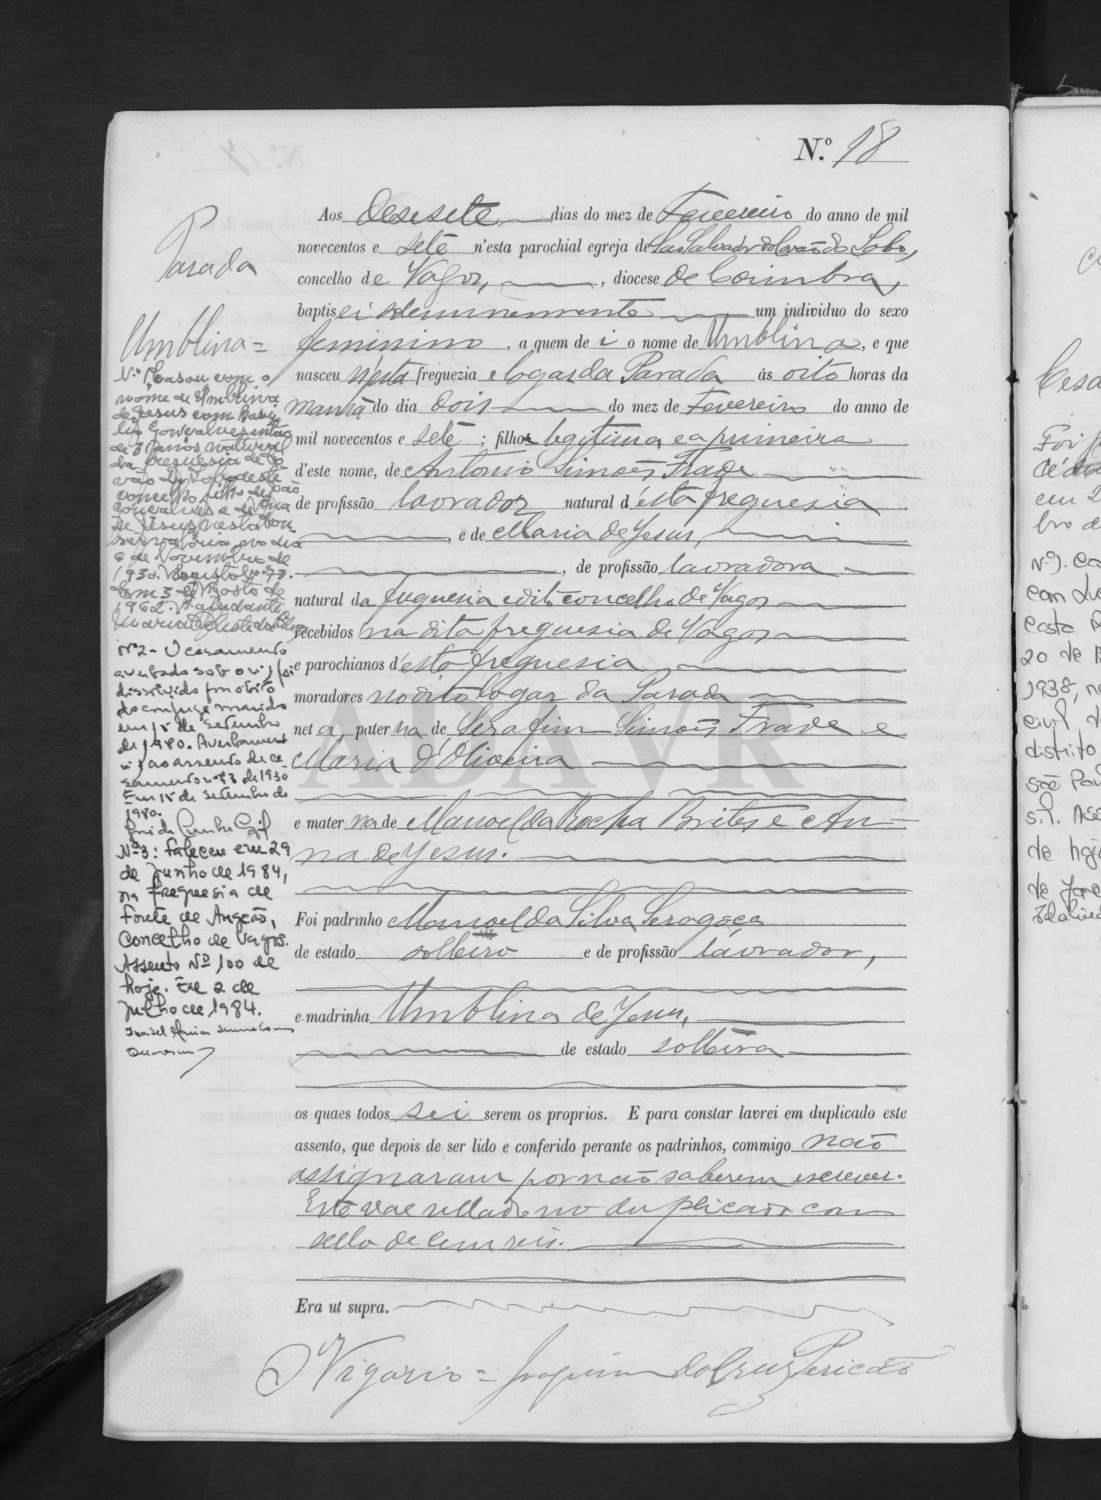 N.º 18
Parada
Umblina =
Aos desesete dias do mez de Fevereiro do anno de mil
novecentos e sete n'esta parochial egreja de São Salvador do Covão do Lobo,
concelho de Vagos, , diocese de Coimbra,
baptisei solemnemente um individuo do sexo
feminino , a quem dei o nome de Umblina, e que
nasceu n'esta freguezia e logar da Parada ás oito horas da
manhã do dia dois do mez de Fevereiro do anno de
mil novecentos e sete ; filha legitima e a primeira
d'este nome, de Antonio Simões Frade
de profissão lavrador natural d'esta freguesia
, e de Maria de Jesus,
, de profissão lavradora
natural da freguesia e dito concelho de Vagos
recebidos na dita freguesia de Vagos
e parochianos d'esta freguesia,
moradores no dito logar da Parada
neta paterna de Serafim Simões Frade e
Maria d'Oliveira
e materna de Manoel da Rocha Brites e An-
na de Jesus.
Foi padrinho Manoel da Silva Seragoça
de estado solteiro e de profissão lavrador,
e madrinha Umblina de Jesus,
de estado solteira
os quaes todos sei serem os proprios. E para constar lavrei em duplicado este
assento, que depois de ser lido e conferido perante os padrinhos, commigo não
assignaram por não saberem escrever.
Este vae sellado no duplicado com
sello de cem reis.
Era ut supra.
O Vigario = Joaquim da Cruz Pericão
N.º 1, Casou com o
nome de Umblina
de Jesus com
Gonçalves
de anos natural
da freguesia de Co-
vão do Lobo deste
concelho, filho de João
Gonçalves e de
de Jesus nesta Con-
servatória no dia
6 de Novembro de
1930. Registo Nº 73.
Em 3 de Agosto de
1962. A ajudante
Maria
Nº 2 - O casamento
averbado sob o nº 1 foi
dissolvido por obito
do conjuge marido
em 15 de Setembro
de 1980. Averbamento
nº 1 ao assento de ca-
samento nº 73 de 1930
Em 15 de Setembro de
1980.
Nº 3: Faleceu em 29
de Junho de 1984,
na freguesia de
Fonte de Angeão,
Concelho de Vagos.
Assento Nº 100 de
hoje. Em 2 de
Julho de 1984.
ADAVR